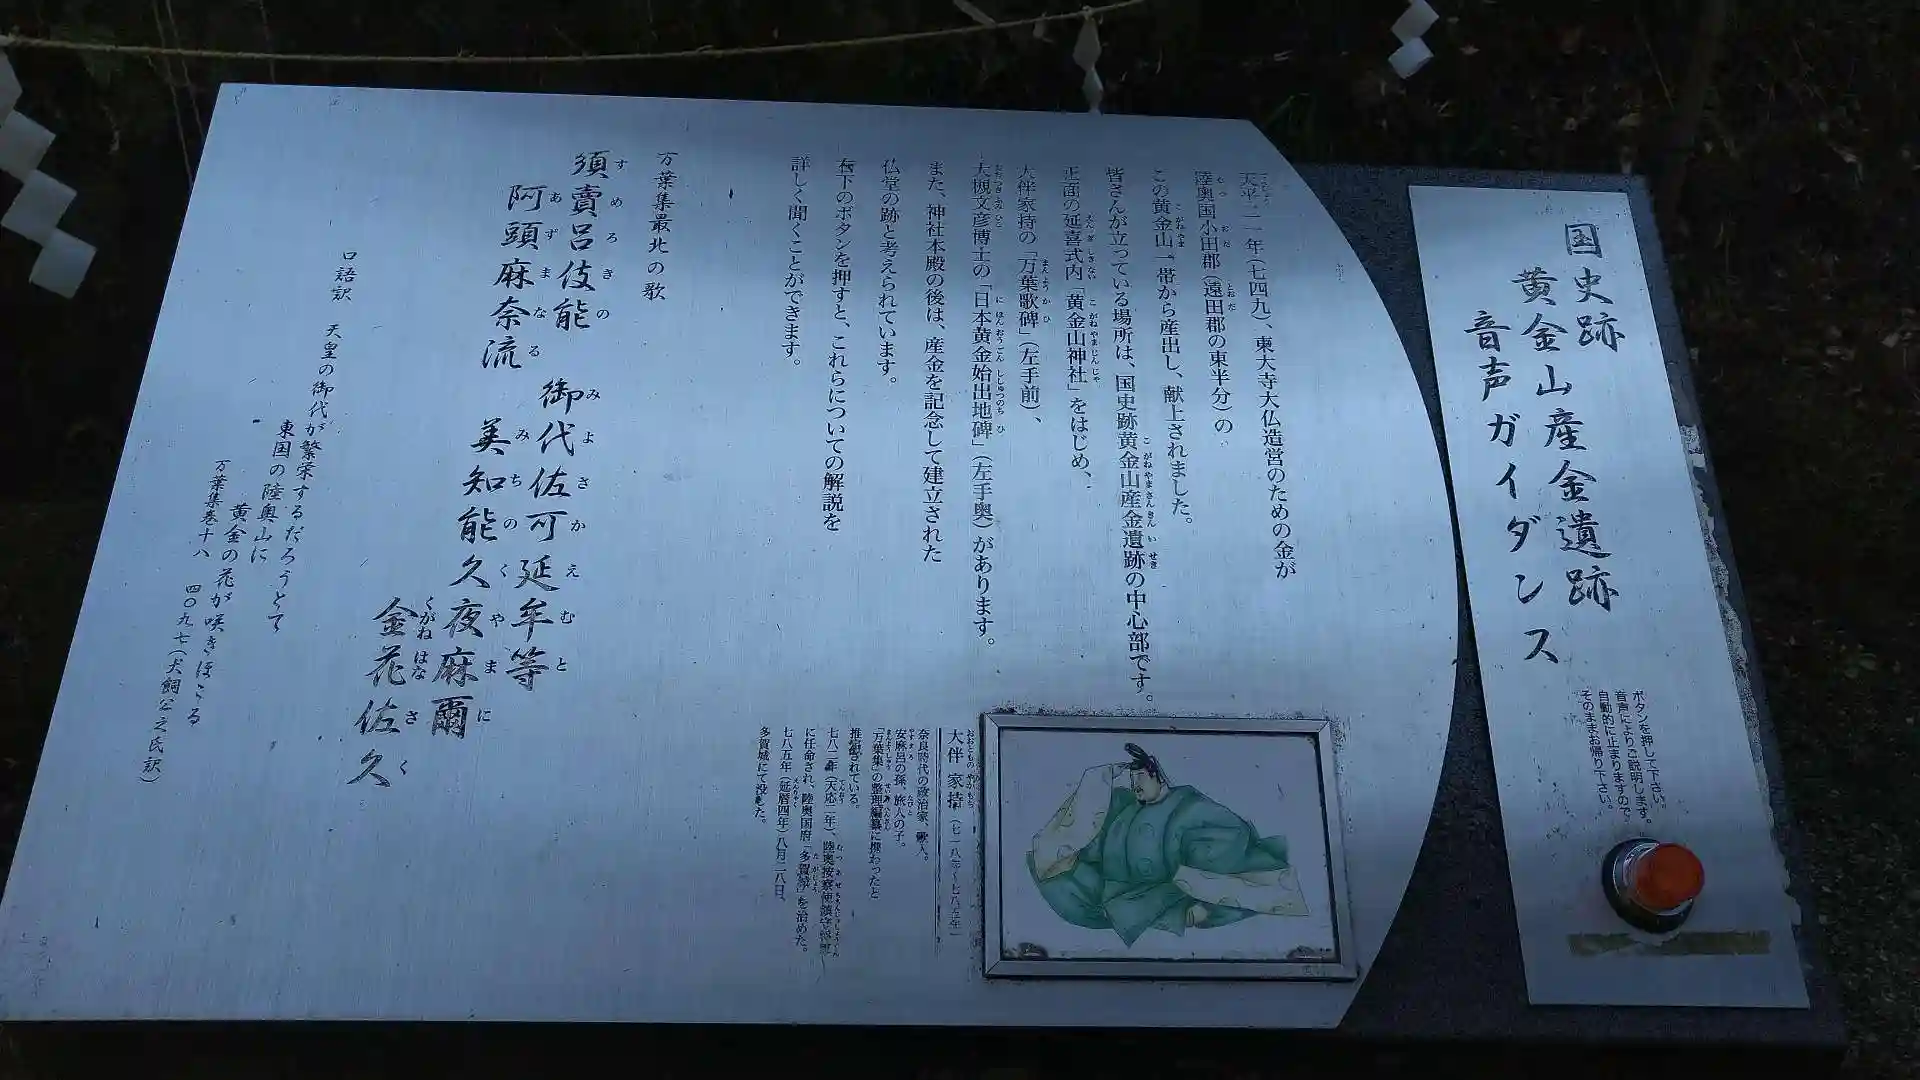 国史跡
黄金山産金遺跡
音声ガイダンス
ボタンを押して下さい。
音声によりご説明します。
自動的に止まりますので、
そのままお帰り下さい。
天平二一年（七四九）、東大寺大仏造営のための金が
陸奥国小田郡（遠田郡の東半分）の
この黄金山一帯から産出し、献上されました。
皆さんが立っている場所は、国史跡黄金山産金遺跡の中心部です。
正面の延喜式内「黄金山神社」をはじめ、
大伴家持の「万葉歌碑」（左手前）、
大槻文彦博士の「日本黄金始出地碑」（左手奥）があります。
また、神社本殿の後は、産金を記念して建立された
仏堂の跡と考えられています。
右下のボタンを押すと、これらについての解説を
詳しく聞くことができます。
大伴家持（七一八?〜七八五年）
奈良時代の政治家、歌人。
安麻呂の孫、旅人の子。
「万葉集」の整理編纂に携わったと
推測されている。
七八二年（天応二年）、陸奥按察使鎮守将軍
に任命され、陸奥国府「多賀城」を治めた。
七八五年（延暦四年）八月二八日、
多賀城にて没した。
万葉集最北の歌
須賣呂伎能 御代佐可延牟等
阿頭麻奈流 美知能久夜麻爾
金花佐久
口語訳 天皇の御代が繁栄するだろうとて
東国の陸奥山に
黄金の花が咲きほこる
万葉集巻十八 四〇九七（犬飼公之氏訳）